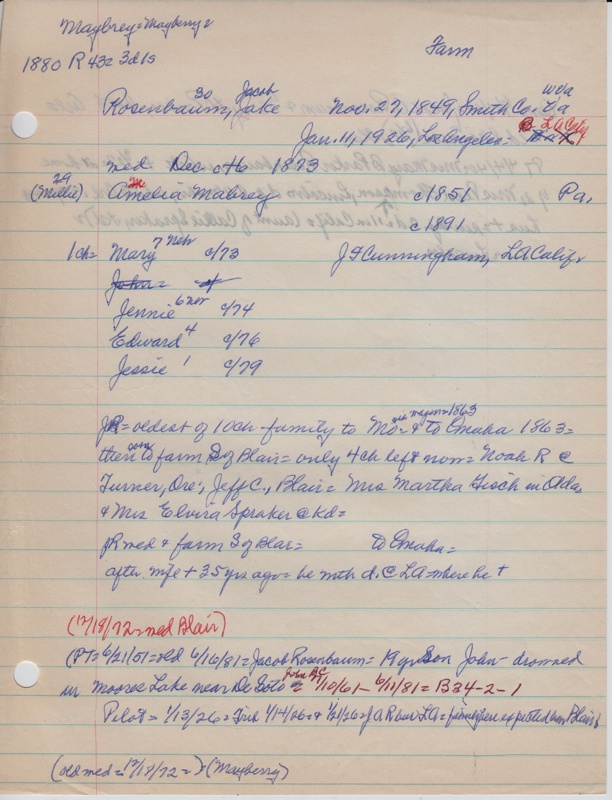 Maybrey = Mayberry =
Farm
1880 R 43 = 3d 1s
30 Jacob WVa
Rosenbaum, Jake Nov. 27, 1849, Smith Co. Va
Jan. 11, 1926, Los Angeles = B. LA City
med Dec c+6 1873
29
(Millie) Amelia Mabrey c1851 Pa.
c1891
1ch = Mary 7 Neb c/73 J F Cunningham, LA Calif.
John =
Jennie 6 nor c/74
Edward 4 c/76
Jessie 1 c/79
JR = oldest of 10ch family to Mo = & to Omaha 1863 =
then soon to farm S of Blair = only 4ch left now = Noah R @
Turner, Ore., Jeff C., Blair = Mrs Martha Gisch in Ida,
& Mrs Elvira Spraker @ Kd =
JR med & farm S of Blair = To Omaha =
after wife + 35 yrs ago = he with d. @ LA = where he +
(12/18/72 = med Blair)
(PT = 6/21/51 = dd 6/16/81 = Jacob Rosenbaum = 19 yr Son John = drowned
in Moores Lake near De Soto = John BC 1/10/61 - 6/11/81 = B34-2-1
Pilot = 1/13/26 = Fun 1/14/26 = & 1/21/26 = J A R bur LA = from here expected bur Blair
(old med = 12/17/72 =) = (Mayberry)